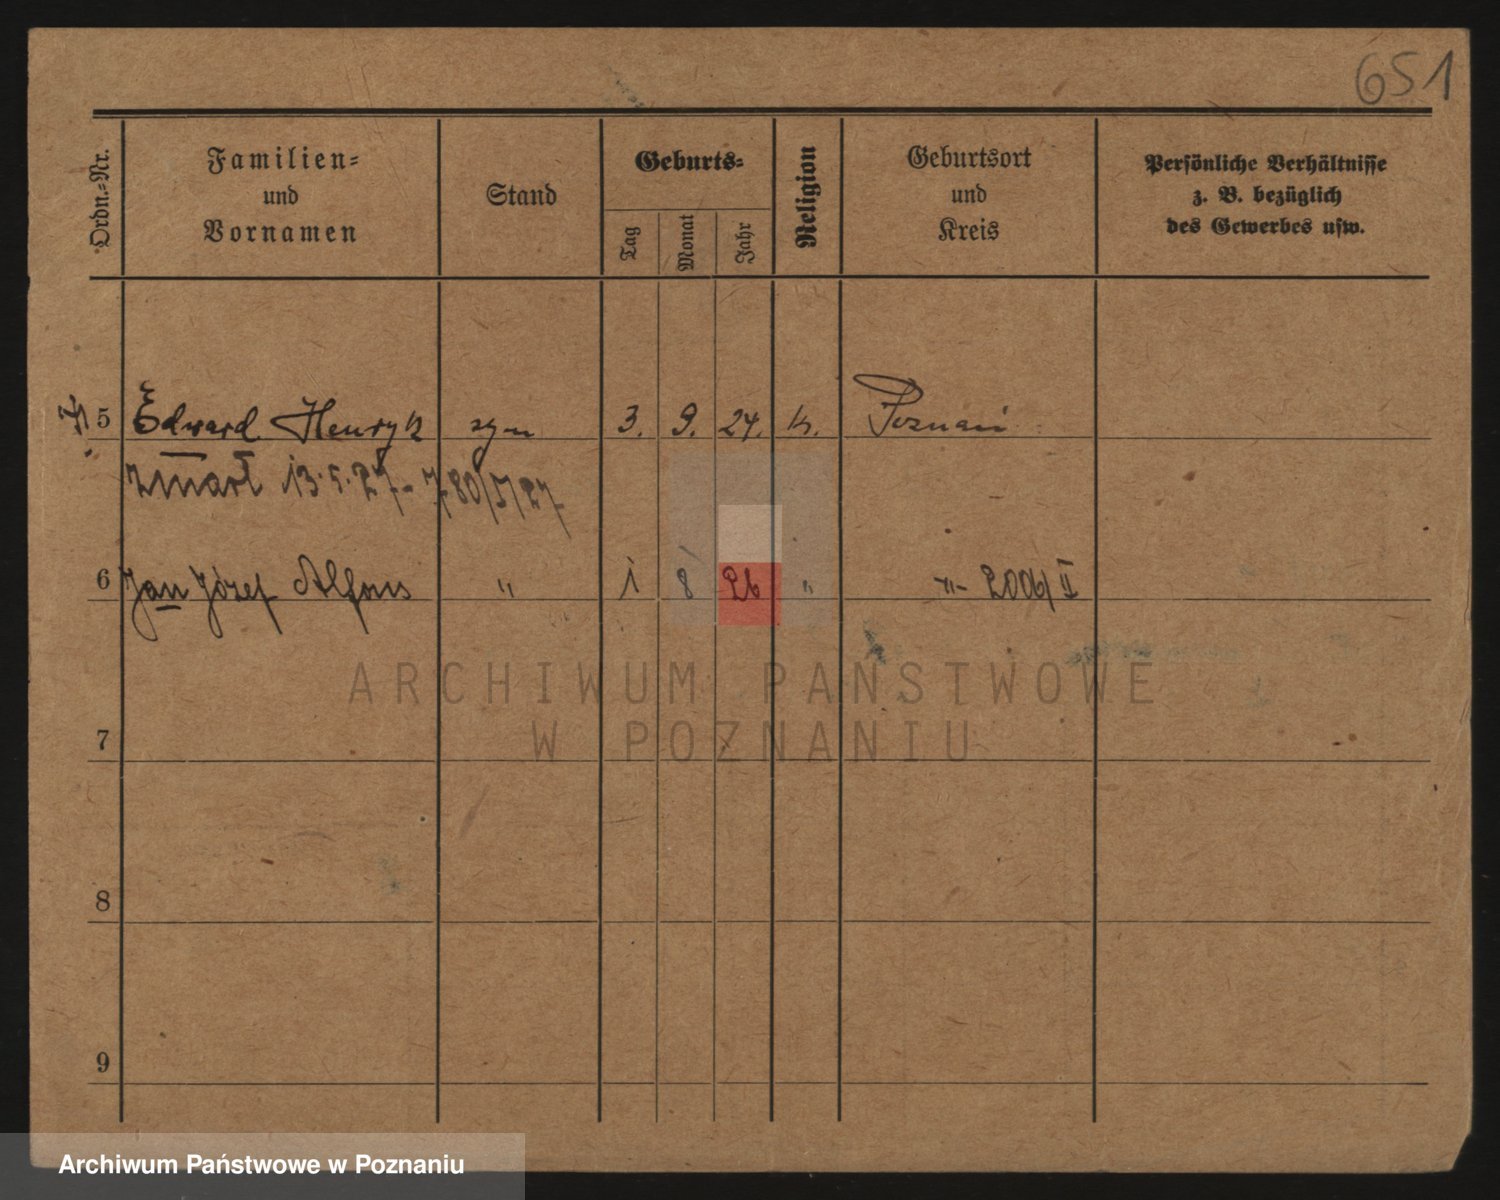 651
Ordn.-Nr.
Familien-
und
Vornamen
Stand
Geburts-
Tag
Monat
Jahr
Religion
Geburtsort
und
Kreis
Persönliche Verhältnisse
z. B. bezüglich
des Gewerbes usw.
5 Edward Henryk syn 3. 9. 24. k. Poznań
zmarł 13.5.27.
6 Jan Józef Alfons " 1 8 26 " -"- 2006/II
ARCHIWUM PAŃSTWOWE
W POZNANIU
7
8
9
Archiwum Państwowe w Poznaniu